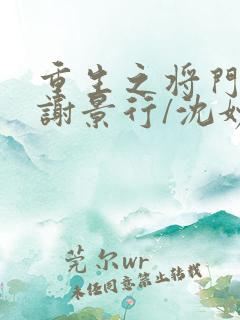 重生之将門
謝景行/沈妙
莞尔wr
未经同意禁止转载